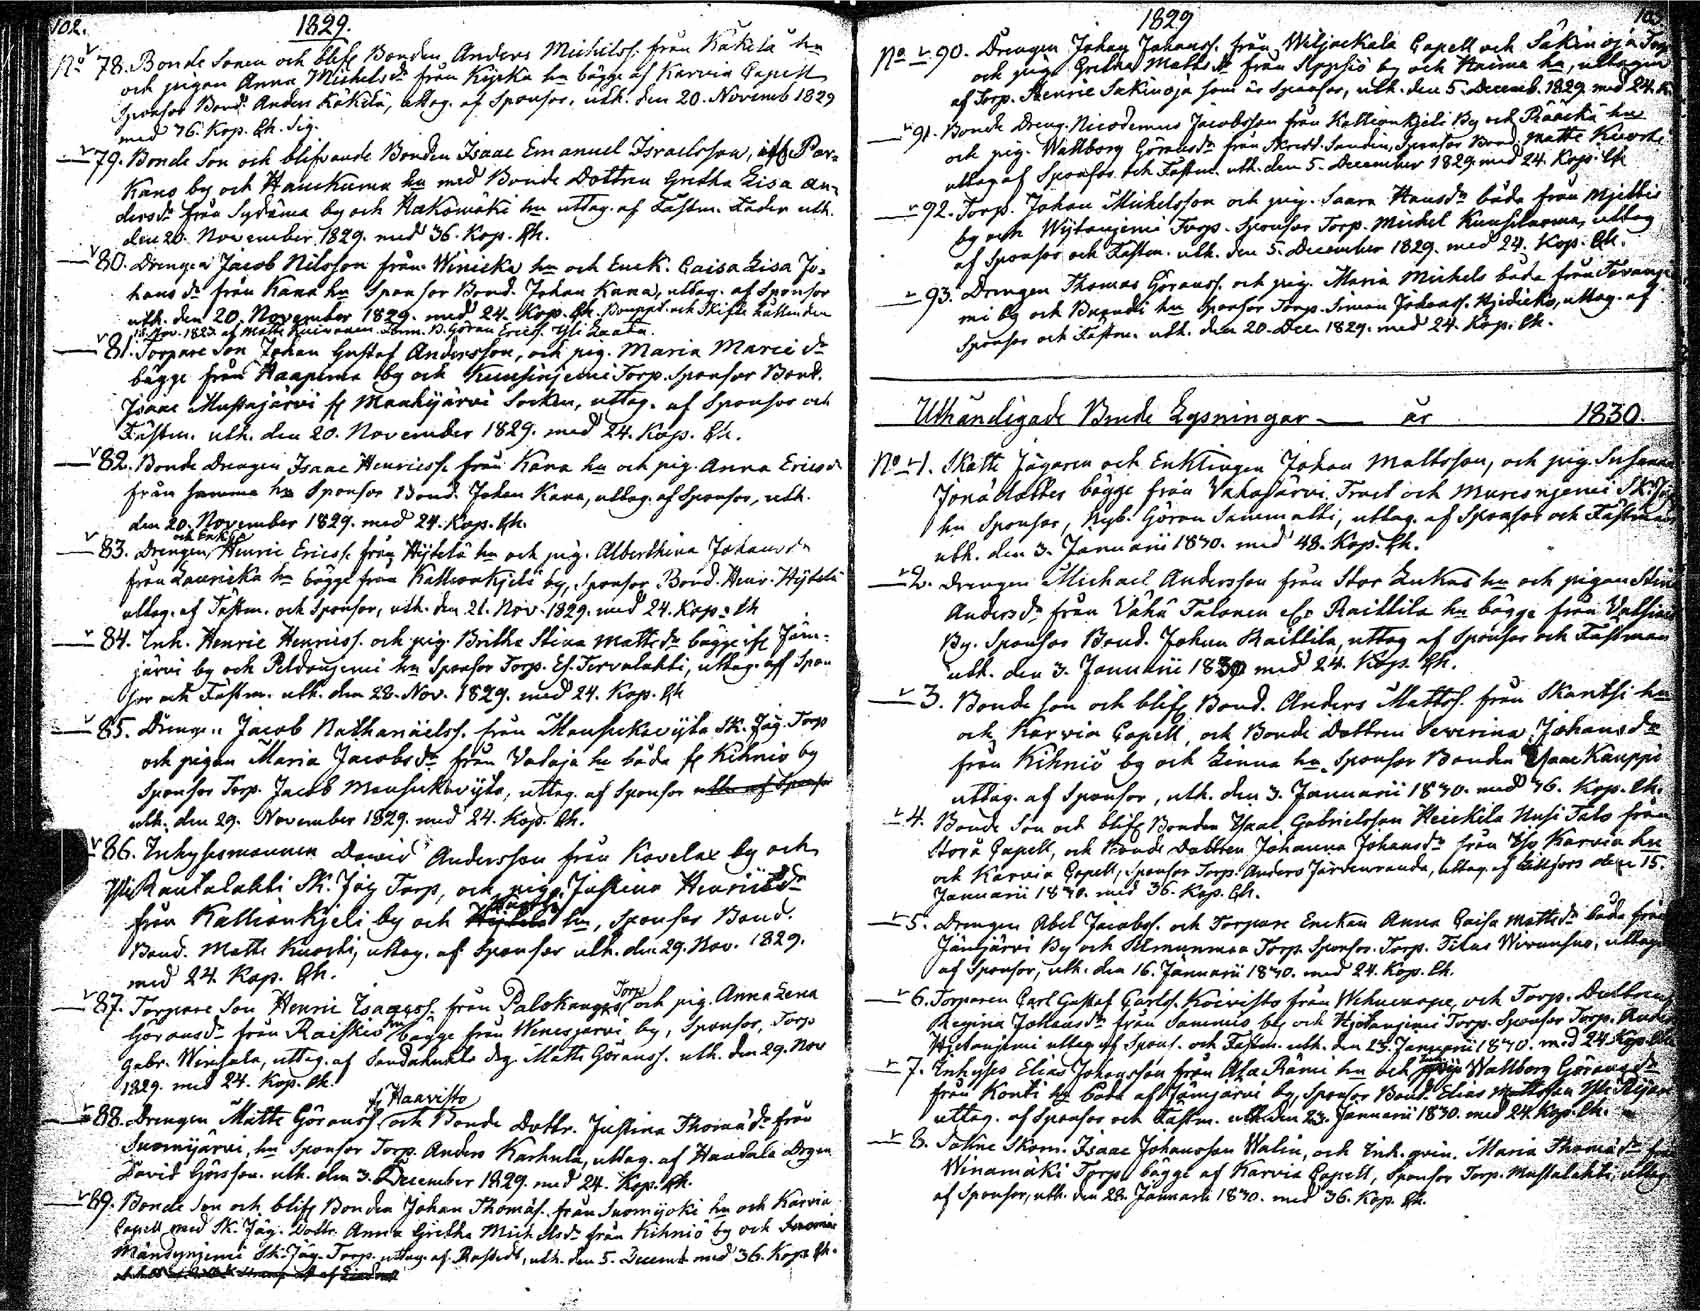 102.
1829.
No 78. Bonde Sonen och blifv Bonden Anders Michelss. från Käkelä hn
och pigan Anna Michelsdr från Kijrka hn bägge af Karvia Capell
Sponsor Bond. Anders Käkelä, uttag. af Sponsor, uth. den 20. Novemb 1829
med 76. Kop. Ch. Sig.
79. Bonde Son och blifvande Bonden Isaac Emanuel Israelsson, af Par-
kano by och Hanckuma hn med Bonde Dottren Gretha Lisa An-
dersdr från Sydäma by och Hakowäki hn uttag. af Fästm. Fader uth.
den 20. November 1829. med 36. Kop. Ch.
80. Drengen Jacob Nilsson från Winicka hn och Enck. Caisa Lisa Jo-
hansdr från Kana hn Sponsor Bond. Johan Kana, uttag. af Sponsor
uth. den 20. November 1829. med 24. Kop. Ch. Bouppt. och Skifte hållen den
Nov. 1827 af Matts Kuivanen. Göran Ericss. Yli Laata.
81. Torpare Son Johan Gustaf Andersson, och pig. Maria Marci dr
bägge från Haapima by och Kuusinjemi Torp. Sponsor Bond.
Isaac Mustajärvi fr Mouhijärvi Socken, uttag. af Sponsor och
Fästm. uth. den 20. November 1829. med 24. Kop. Ch.
82. Bonde Drengen Isaac Henricss. från Kana hn och pig. Anna Ericsdr
från samma hn Sponsor Bond. Johan Kana, uttag. af Sponsor, uth.
den 20. November 1829. med 24. Kop. Ch.
och Enkl.
83. Drengen Henric Ericss. från Hijtelä hn och pig. Alberthina Johansdr
från Lauricka hn bägge från Kallionkjeli by, Sponsor Bond. Henr. Hijtelä
uttag. af Fästm. och Sponsor, uth. den 21. Nov. 1829. med 24. Kop. Ch
84. Inh. Henric Henricss. och pig. Britha Stina Mattsdr bägge ifr Jäm-
järvi by och Peldonjemi hn Sponsor Torp. Es. Tervalahti, uttag. aff Spon
sor och Fästm. uth. den 28. Nov. 1829. med 24. Kop. Ch
85. Drengen Jacob Nathanaëlss. från Mansickwijta Sk. Jäg. Torp
och pigan Maria Jacobsdr från Vataja hn båda fr Kihniö by
Sponsor Torp. Jacob Mansickwijta, uttag. af Sponsor uth. af Sponsor
uth. den 29. November 1829. med 24. Kop. Ch.
86. Inhysesmannen Dawid Andersson från Kovelax by och
Yli Rautalahti Sk. Jäg Torp, och pigan Justina Henricsdr
från Kallionkjeli by och hn, Sponsor Bond.
Bond. Matts Knoski, uttag. af Sponsor uth. den 29. Nov. 1829.
med 24. Kop. Ch.
87. Torpare Son Henric Isaacss. från Palokangas Torp och pig. Anna Lena
Göransdr från Raiskio hn bägge från Wenesjärvi by, Sponsor, Torp
Gabr. Wensala, uttag. af Sandahults dreg. Matts Göranss. uth. den 29. Nov
1829. med 24. Kop. Ch.
fr Haavisto
88. Drengen Matts Göranss. och Bonde Dottr. Justina Thomädr från
Suomijärvi, hn Sponsor Torp. Anders Karhula, uttag. af Haudala Drgen
David Görsson. uth. den 3. December 1829. med 24. Kop. Ch.
89. Bonde Son och blifv Bonden Johan Thomäs. från Suomijoki hn och Karvia
Capell med Sk. Jäg. Dottr. Anna Gretha Michelsdr från Kihniö by och
Mändynjemi Sk. Jäg. Torp. uttag. af Rostedt, uth. den 5. Decemb med 36. Kop. Ch.
1829
103
No 90. Drengen Johan Johanss. från Wiljackala Capell och Sakinoja Torp
och pig. Gretha Mattsdr från Sijpsiö by och Knima hn, uttagen
af Torp. Henric Sakinoja som är Sponsor, uth. den 5. Decemb. 1829 med 24. K.
91. Bonde Dreng. Nicodemus Jacobsson från Kallionkjeli By och Räckä hn
och pig. Wallborg Göransdr från Sponsor Bond Matts Knoski
uttag af Sponsor och Fästm. uth. den 5. December 1829. med 24. Kop. Ch
92. Torp. Johan Michelsson och pig. Saara Hansdr båda från Mjettis
by och Wijtanjemi Torp. Sponsor Torp. Michel Kuusiluoma, uttag
af Sponsor och Fästm. uth. den 5. December 1829. med 24. Kop. Ch.
93. Drengen Thomas Göranss. och pig. Maria Michels båda från Torvanje
mi by och Brandi hn Sponsor Torp. Simon Johanss. Hjedicko, uttag. af
Sponsor och Fästm. uth. den 20. Dec 1829. med 24. Kop. Ch.
Uthändigade Brude Lysningar — år 1830.
No 1. Skatte Jägaren och Enklingen Johan Mattsson, och pig. Susanna
Jonädotter bägge från Vahajärvi Tract och Muresnjemi Sk. Jäg
hn Sponsor, Nyb. Göran Sammatti, uttag. af Sponsor och Fästman
uth. den 3. Januarii 1830. med 48. Kop. Ch.
2. Drengen Michael Andersson från Stor Lukas hn och pigan Stina
Andersdr från Vähä Talonen elr Raittila hn bägge från Vatsiais
By. Sponsor Bond. Johan Raittila, uttag af Sponsor och Fästman
uth. den 3. Januarii 1830 med 24. Kop. Ch.
3. Bonde Son och blifv Bond. Anders Mattss. från Skantsi hn
och Karvia Capell, och Bonde Dottren Severina Johansdr
från Kihniö by och Linna hn, Sponsor Bonden Isaac Kauppi
uttag. af Sponsor, uth. den 3. Januarii 1830. med 76. Kop. Ch.
4. Bonde Son och blifv Bonden Isaac Gabrielsson Heickilä Nusi Talo från
Storå Capell, och Bonde Dottren Johanna Johansdr från Yli Karvia hn
och Karvia Capell, Sponsor Torp. Anders Järvenranda, uttag. af Lillfors den 15.
Januarii 1830. med 36. Kop. Ch.
5. Drengen Abel Jacobss. och Torpare Enckan Anna Caisa Mattsdr båda från
Jämijärvi By och Torp. Sponsor. Torp. Titus Wirunsuo, uttag.
af Sponsor, uth. den 16. Januarii 1830. med 24. Kop. Ch.
6. Torparen Carl Gustaf Carlss. Koivisto från Wehuwarpe, och Torp. Dottren
Regina Johansdr från Sammis by och Hjetanjemi Torp. Sponsor Torp. Anders
Hjetanjemi uttag af Spons. och Fästm. uth. den 23. Januarii 1830. med 24 Kop. Ch
7. Enhyses Elias Johansson från Ala Rämi hn och Wallborg Göransdr
från Konti hn båda af Jämijärvi by, Sponsor Bond. Elias Mattsson Yli Reijan
uttag. af Sponsor och Fästm. uth. den 23. Januarii 1830. med 24 Kop. Ch.
8. Sockne Skom. Isaac Johansson Walin, och Enk. qvin. Maria Thomädr från
Winamäki Torp bägge af Karvia Capell, Sponsor Torp. Mustalahti, uttag.
af Sponsor, uth. den 28. Januarii 1830. med 36. Kop. Ch.